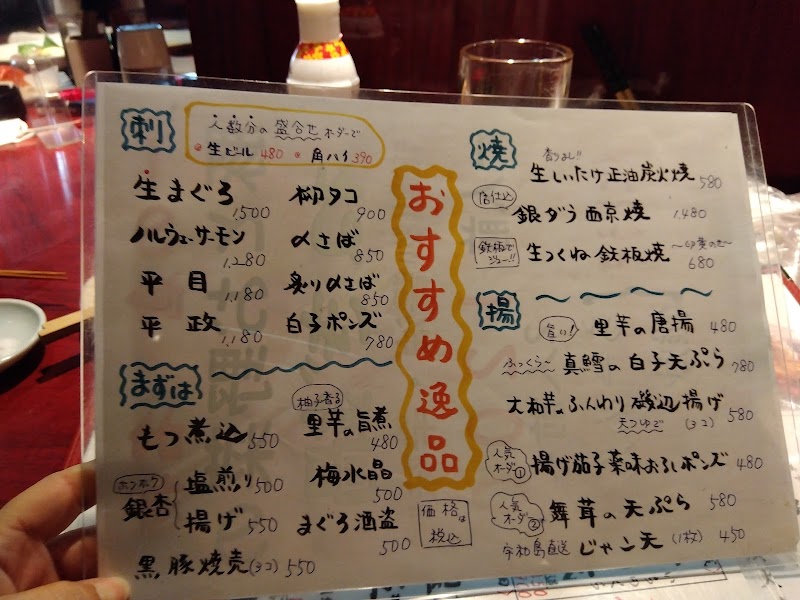 刺
人数分の盛合せオーダーで
生ビール 480 角ハイ 390
生まぐろ 1500
ノルウェーサーモン 1,280
平目 1,180
平政 1,180
柳タコ 900
〆さば 850
炙り〆さば 850
白子ポンズ 780
まずは
もつ煮込 550
ホクホク
銀杏
塩煎り 500
揚げ 550
黒豚焼売(3コ) 550
柚子香る
里芋の旨煮 480
梅水晶 500
まぐろ酒盗 500
おすすめ逸品
価格は税込
焼
香りよし!!
生しいたけ正油炭火焼 580
店仕込
銀ダラ西京焼 1,480
鉄板でジュー!!
生つくね鉄板焼 680
揚
旨い!
里芋の唐揚 480
ふっくら〜
真鱈の白子天ぷら 780
大和芋のふんわり磯辺揚げ 580
天つゆで (3コ)
人気オーダー①
揚げ茄子薬味おろしポンズ 480
人気オーダー②
舞茸の天ぷら 580
宇和島直送 じゃこ天(1枚) 450